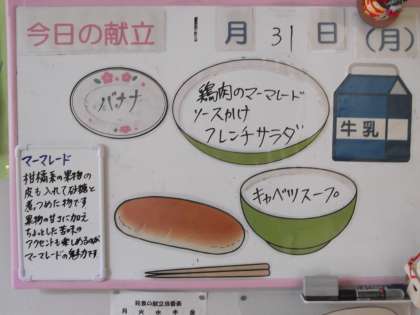 今日の献立
月 31 日 (月)
バナナ
鶏肉のマーマレード
ソースかけ
フレンチサラダ
牛乳
キャベツスープ
マーマレード
柑橘系の果物の
皮も入れて砂糖と
煮つめた物です
果物の甘さに加え
ちょっとした苦味の
アクセントも楽しめるのが
マーマレードの魅力です
月 火 水 木 金